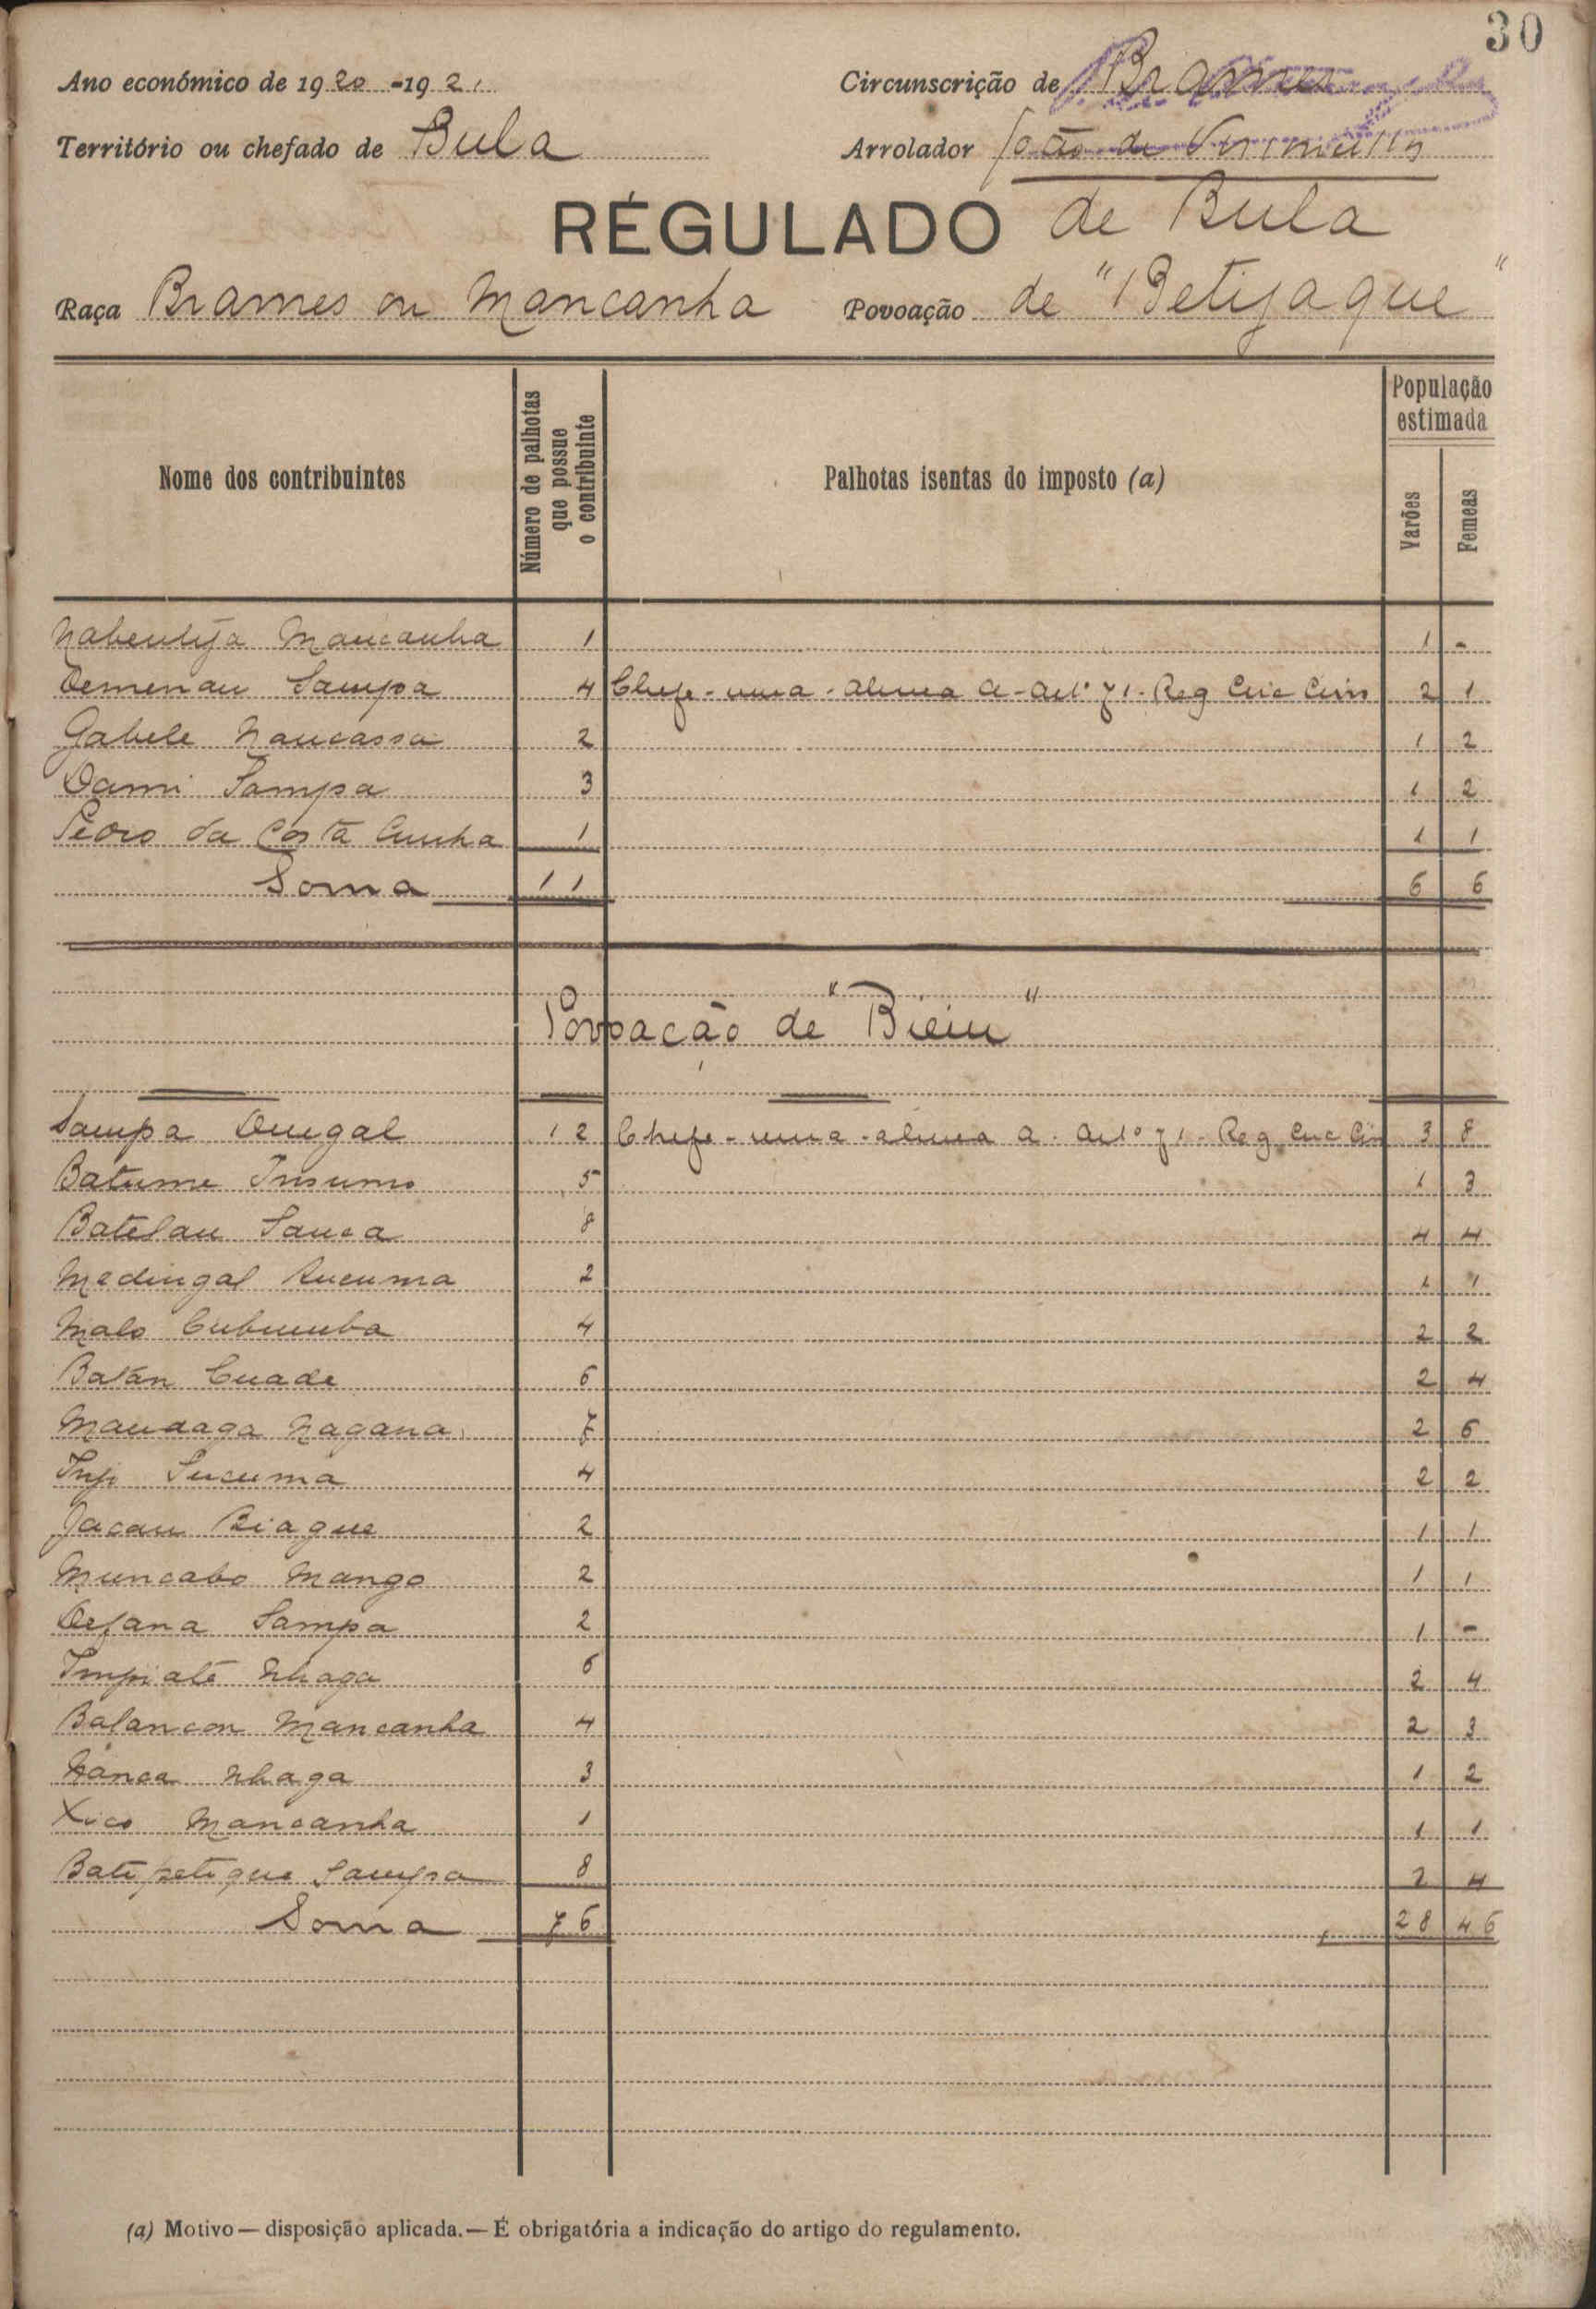 30
Ano económico de 1920-1921
Circunscrição de Brames
Território ou chefado de Bula
Arrolador João de
RÉGULADO de Bula
Raça Brames ou Mancanha Povoação de "Betijaque"
Nome dos contribuintes
Número de palhotas que possue o contribuinte
Palhotas isentas do imposto (a)
População estimada
Varões
Femeas
Nabentija Mancanha 1 1 -
Demenau Sampa 4 Chefe - uma - alinea a - artº 71 - Reg Circ Civis 2 1
Gabele Naucassa 2 1 2
Dami Sampa 3 1 2
Pedro da Costa Cunha 1 1 1
Soma 11 6 6
Povoação de "Bieiu"
Sampa Dungal 12 Chefe - uma - alinea a - artº 71 - Reg Circ Civ 3 8
Batume Insumo 5 1 3
Batelau Sanca 8 4 4
Madingal 2 1 1
Malo Cubumba 4 2 2
Balán Cuade 6 2 4
Mandaga Nagana 7 2 6
Sucuma 4 2 2
Jacau Biague 2 1 1
Muncabo Mango 2 1 1
Defana Sampa 2 1 -
Impiaté Nhaga 6 2 4
Balancon Mancanha 4 2 3
Nanca Nhaga 3 1 2
Xico Mancanha 1 1 1
Batipetique Sampa 8 2 4
Soma 76 28 46
(a) Motivo — disposição aplicada. — É obrigatória a indicação do artigo do regulamento.